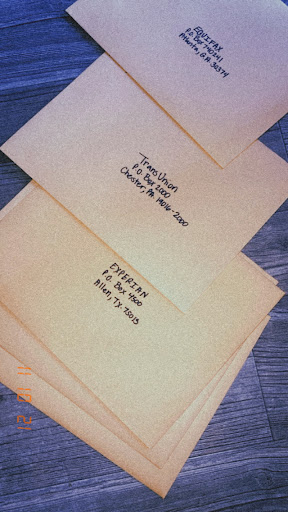 EQUIFAX
P.O. Box 740241
Atlanta, GA 30374
TransUnion
P.O. Box 2000
Chester, PA 19016-2000
EXPERIAN
P.O. Box 4500
Allen, TX. 75013
12 01 11